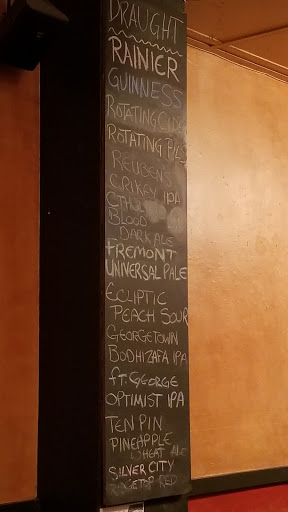 DRAUGHT
RAINIER
GUINNESS
ROTATING CIDER
ROTATING PILS
REUBENS
CRIKEY IPA
BLOOD
DARK ALE
FREMONT
UNIVERSAL PALE
ECLIPTIC
PEACH SOUR
GEORGETOWN
BODHIZAFA IPA
FT. GEORGE
OPTIMIST IPA
TEN PIN
PINEAPPLE
WHEAT ALE
SILVER CITY
RIDGETOP RED